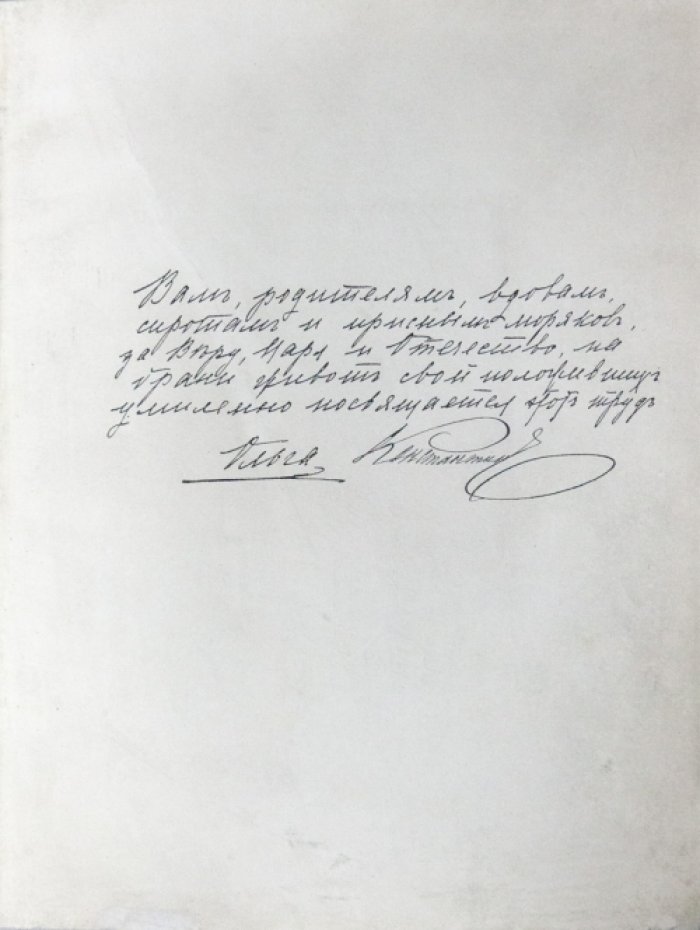 Вамъ, родителямъ, вдовамъ,
сиротамъ и приснымъ моряковъ,
за Вѣру, Царя и Отечество, на
брани животъ свой положившихъ
умиленно посвящается этотъ трудъ
Ольга Константин